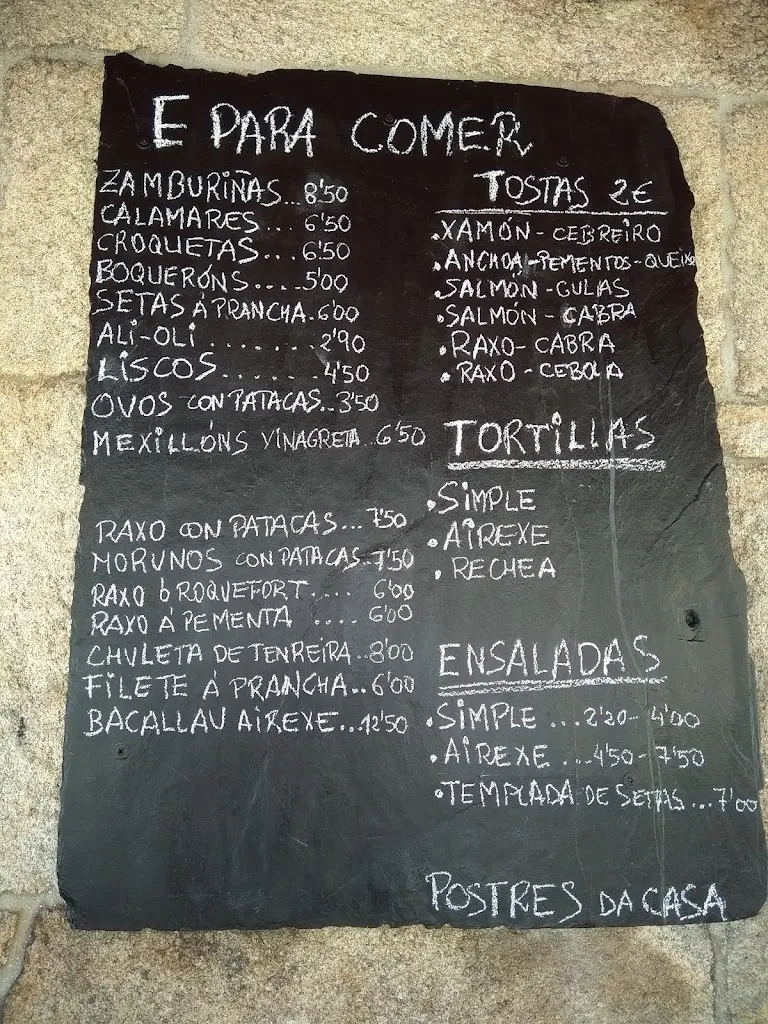 E PARA COMER
ZAMBURIÑAS...8'50
CALAMARES... 6'50
CROQUETAS... 6'50
BOQUERÓNS....5'00
SETAS Á PRANCHA.6'00
ALI-OLI ........ 2'90
LISCOS....... 4'50
OVOS CON PATACAS..3'50
MEXILLÓNS VINAGRETA..6'50
RAXO CON PATACAS...7'50
MORUNOS CON PATACAS..7'50
RAXO Ó ROQUEFORT.... 6'00
RAXO Á PEMENTA .... 6'00
CHULETA DE TENREIRA..8'00
FILETE Á PRANCHA..6'00
BACALLAU AIREXE...12'50
TOSTAS 2€
.XAMÓN-CEBREIRO
.ANCHOA-PEMENTOS-QUEIXO
.SALMÓN-GULAS
.SALMÓN-CABRA
.RAXO-CABRA
.RAXO-CEBOLA
TORTILLAS
.SIMPLE
.AIREXE
.RECHEA
ENSALADAS
.SIMPLE ...2'20-4'00
.AIREXE ...4'50-7'50
.TEMPLADA DE SETAS ...7'00
POSTRES DA CASA